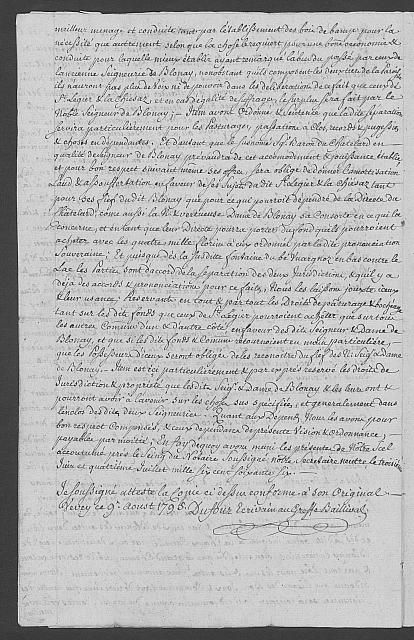 meilleur menage et conduite tant par l'établissement des bois de barnes pour la
nécessité que autrement selon que la chose le requiert pour une bonne oeconomie &
conduite pour laquelle mieux établir ayant remarqué l'abus du passé par ceux de
l'ancienne Seigneurie de Blonay, nonobstant qu'ils composent les deux tiers de la
ils n'auront pas plus de voix ni de pouvoir dans les délibérations de fait que ceux de
St. Legier & la Chiesaz, et en cas d'égalité de suffrages, le surplus sera fait par le
Noble Seigneur de Blonay; Item avons Ordonné & Sentencé que la dite séparation
servira particulièrement pour les Pasturages, passation à Clos, records &
& choses en dépendantes. Et d'autant que le susnommé Sgr. Baron du Chatelard en
qualité de Seigneur de Blonay prévaudra de cet accommodement & jouissance établie,
et pour bon respect suivant mesme ses offres, sera obligé de donner l'amortisation
Laud & assoufertation en faveur de ses Sujets du dit St. Legier & la Chiesaz tant
pour ses fiefs du dit Blonay que pour ce qui pourroit dépendre de la Directe du
Chatelard; come aussi la N. & vertueuse Dame de Blonay sa Consorte en ce qui la
concerne, et autant que leur Directe pourra porter du fond qu'ils pourroient
acheter avec les quatre mille florins à eux ordonné par la dite prononciation
Souveraine; Et puisque dès la susdite fontaine du
Lac les Parties sont d'accord de la séparation des deux Jurisdiction, & qu'il y a
déja des accords & prononciations pour ce fait, Nous les laissons jouxte iceux
& leur usance; Reservant en tout & partout les Droits de pâturage & bochéage
tant sur les dits fonds que ceux de St. Legier pourroient acheter que sur tous
les autres Comuns d'un & d'autre côté, en faveur des dits Seigr. & Dame de
Blonay, et que si les dits fonds & Comuns retournoient en main particulière,
que les Possesseurs d'iceux seront obligés de les reconoitre du fief des N. Seigr. & Dame
de Blonay. Item est ici particulièrement & par exprés reservé les droits de
Jurisdiction & propriété que les dits Seigr. & Dame de Blonay & les leurs ont &
pourront avoir à l'avenir sur les choses sus specifiées, et generalement dans
l'enclos des dites deux Seigneuries. Quant aux Dépends, Nous les avons pour
bon respect Compensés, & ceux dependans de presente Vision & Ordonnance,
payables par moitié; En Foy dequoy avons muni les présentes de Nôtre Scel
accoutumé près le seing du Notaire Soussigné nôtre Secretaire
Juin et quatrième Juillet mille six cent soixante six.
Je Soussigné atteste la Copie ci dessus conforme à son Original
Vevey ce 9e. Aoust 1795. Dufour Ecrivain au Greffe Baillival